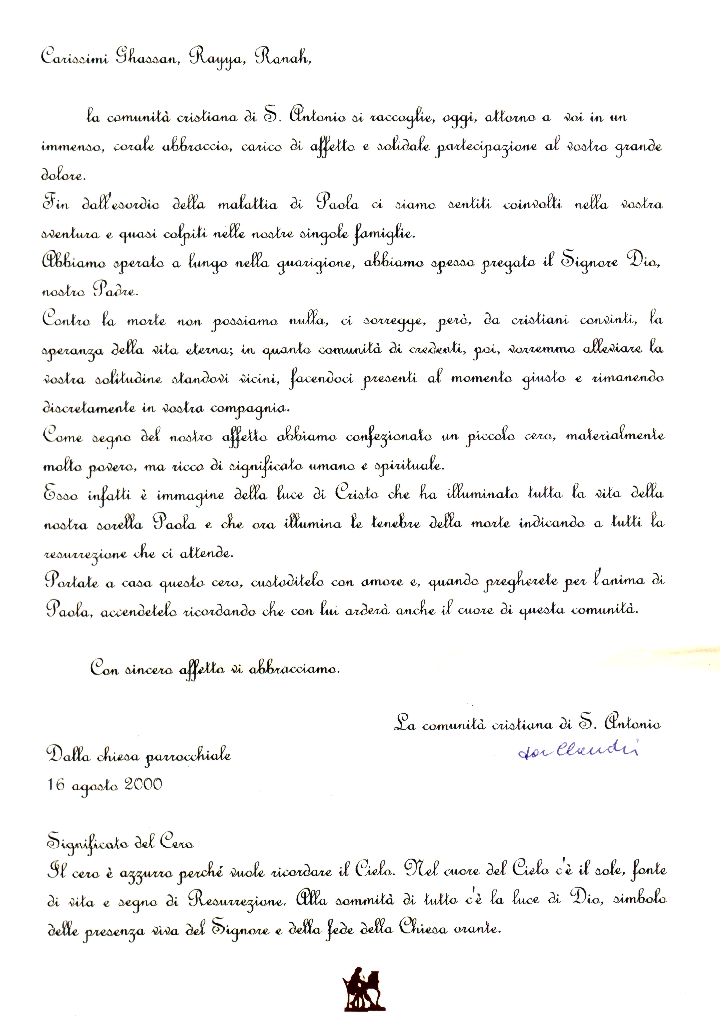 Carissimi Ghassan, Rayya, Ranah,
la comunità cristiana di S. Antonio si raccoglie, oggi, attorno a voi in un
immenso, corale abbraccio, carico di affetto e solidale partecipazione al vostro grande
dolore.
Fin dall'esordio della malattia di Paola ci siamo sentiti coinvolti nella vostra
sventura e quasi colpiti nelle nostre singole famiglie.
Abbiamo sperato a lungo nella guarigione, abbiamo spesso pregato il Signore Dio,
nostro Padre.
Contro la morte non possiamo nulla, ci sorregge, però, da cristiani convinti, la
speranza della vita eterna; in quanto comunità di credenti, poi, vorremmo alleviare la
vostra solitudine standovi vicini, facendoci presenti al momento giusto e rimanendo
discretamente in vostra compagnia.
Come segno del nostro affetto abbiamo confezionato un piccolo cero, materialmente
molto povero, ma ricco di significato umano e spirituale.
Esso infatti è immagine della luce di Cristo che ha illuminato tutta la vita della
nostra sorella Paola e che ora illumina le tenebre della morte indicando a tutti la
resurrezione che ci attende.
Portate a casa questo cero, custoditelo con amore e, quando pregherete per l'anima di
Paola, accendetelo ricordando che con lui arderà anche il cuore di questa comunità.
Con sincero affetto vi abbracciamo.
La comunità cristiana di S. Antonio
Dalla chiesa parrocchiale
16 agosto 2000
Significato del Cero
Il cero è azzurro perché vuole ricordare il Cielo. Nel cuore del Cielo c'è il sole, fonte
di vita e segno di Resurrezione. Alla sommità di tutto c'è la luce di Dio, simbolo
delle presenza viva del Signore e della fede della Chiesa orante.